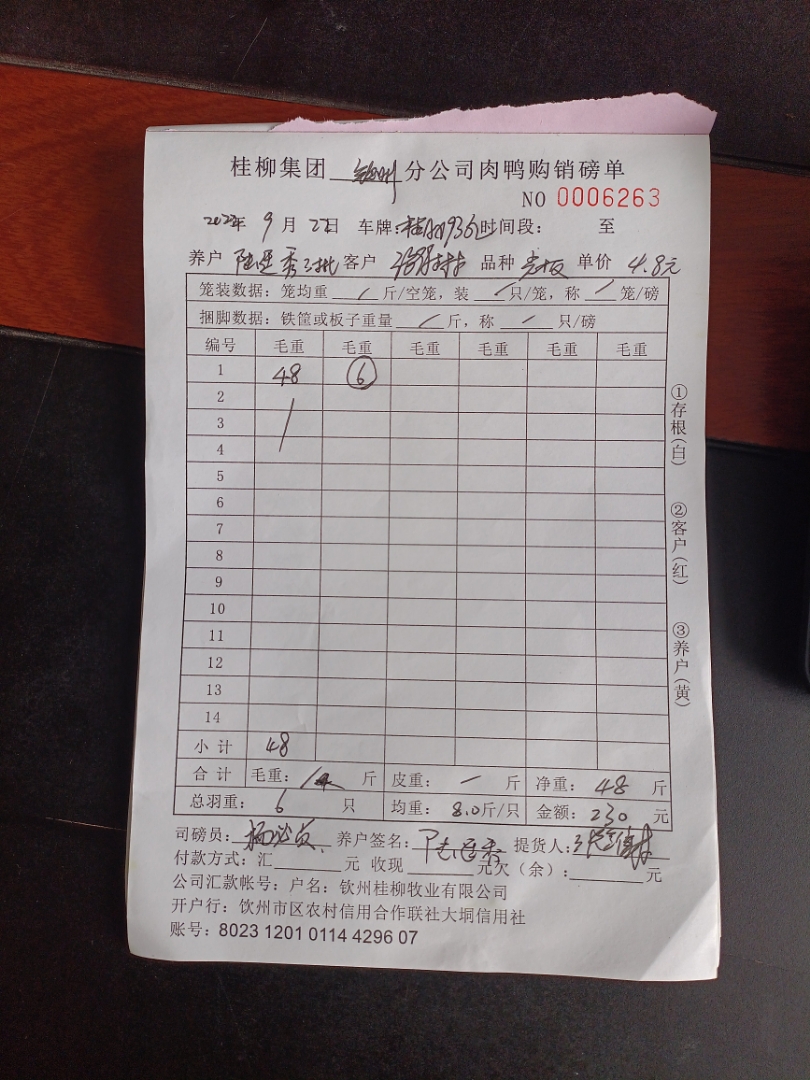 桂柳集团 钦州 分公司肉鸭购销磅单
NO 0006263
2022年 9月 22日 车牌: 时间段: 至
养户 客户 品种 单价 4.8元
笼装数据:笼均重 / 斤/空笼,装 / 只/笼,称 / 笼/磅
捆脚数据:铁筐或板子重量 / 斤,称 / 只/磅
编号 毛重 毛重 毛重 毛重 毛重 毛重
1 48 ⑥
2
3
4
5
6
7
8
9
10
11
12
13
14
小计 48
合计 毛重: 斤 皮重: — 斤 净重: 48 斤
总羽重: 6 只 均重: 8.0斤/只 金额: 230 元
司磅员: 养户签名: 提货人:
付款方式:汇 元 收现 元欠(余): 元
公司汇款帐号:户名:钦州桂柳牧业有限公司
开户行:钦州市区农村信用合作联社大垌信用社
账号:8023 1201 0114 4296 07
①存根(白)
②客户(红)
③养户(黄)